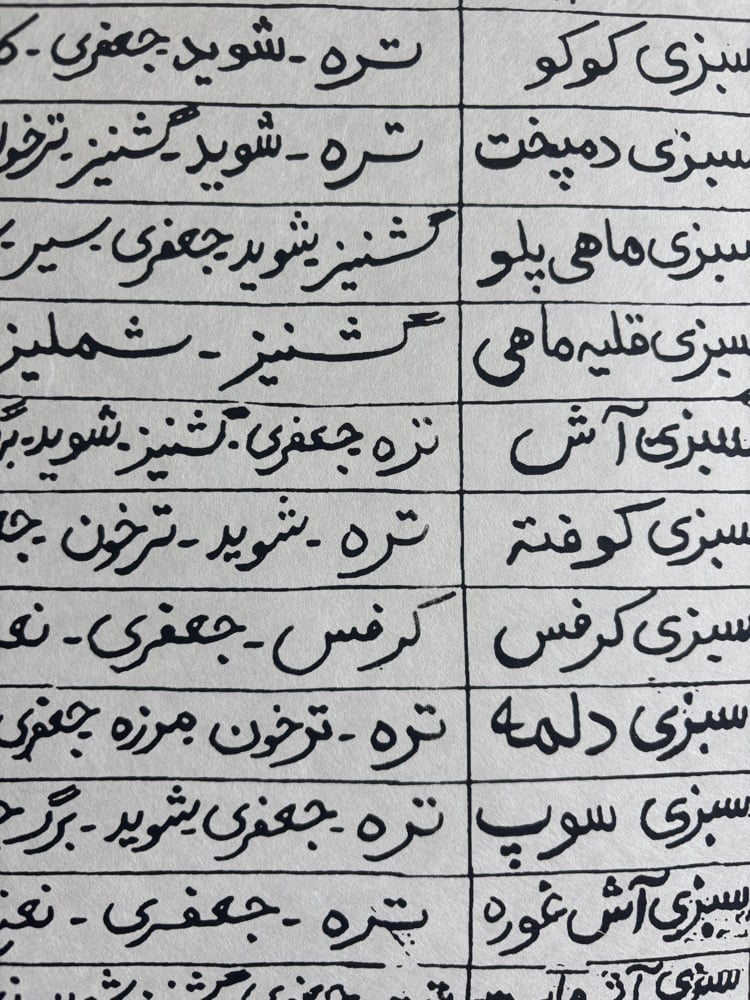 سبزی کوکو تره - شوید جعفری -
سبزی دمپخت تره - شوید - گشنیز -
سبزی ماهی پلو گشنیز شوید جعفری - سیر -
سبزی قلیه ماهی گشنیز - شملیز
سبزی آش تره جعفری - گشنیز - شوید -
سبزی کوفته تره - شوید - ترخون
سبزی کرفس کرفس - جعفری -
سبزی دلمه تره - ترخون مرزه جعفری
سبزی سوپ تره - جعفری شوید - برگ
سبزی آش غوره تره - جعفری -
سبزی